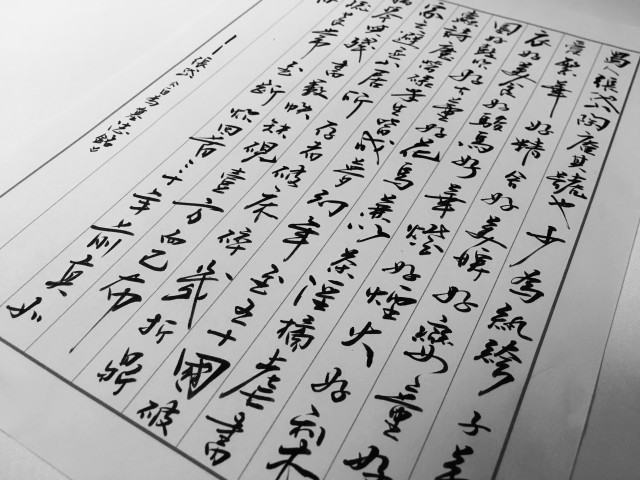 蜀人張岱陶庵其號也少為紈絝子弟
愛繁華好精舍好美婢好孌童好
衣好美食好駿馬好華燈好煙火好梨
園好鼓吹好古董好花鳥兼以茶淫橘虐書
蠹詩魔勞碌半生皆成夢幻年至五十國破
家亡避跡山居所存者破床碎几折鼎
琴與殘書數帙缺硯壹方而已布
食常至斷炊回首二十年前真如
——張岱 自為墓志銘